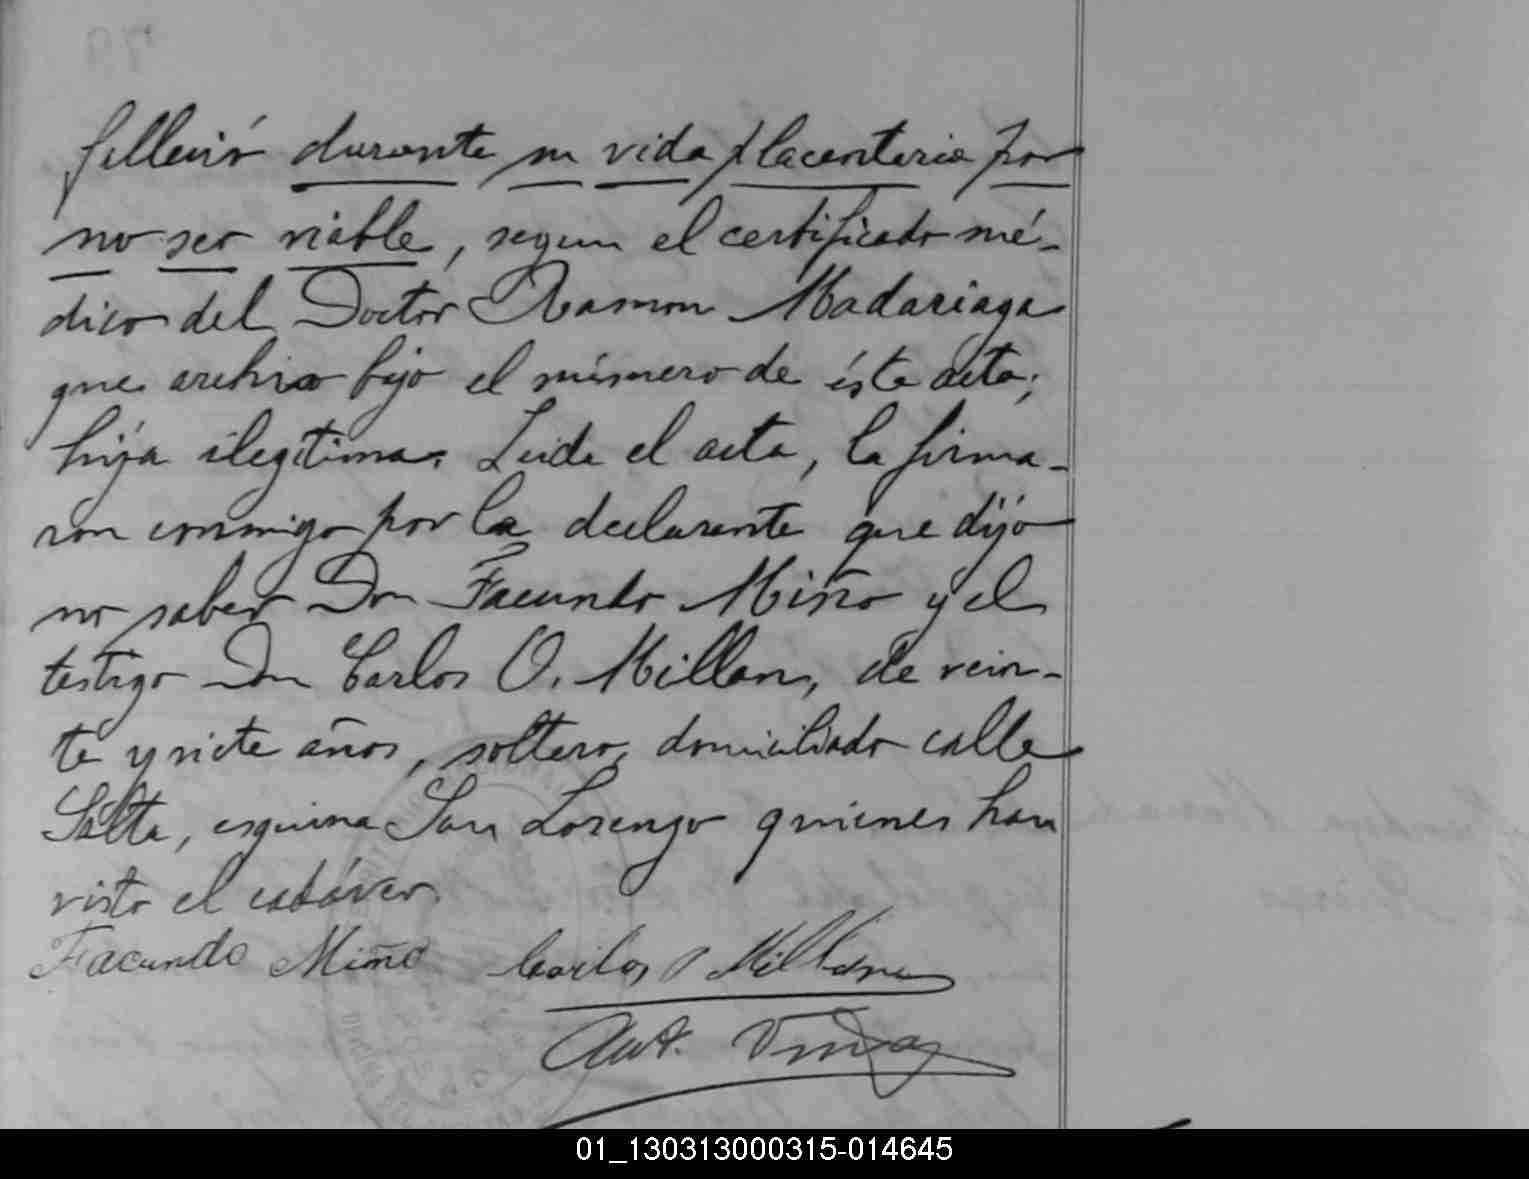 falleció durante su vida placentaria por
no ser viable, segun el certificado mé-
dico del Doctor Ramon Madariaga
que archivo bajo el número de ésta acta;
hija ilegítima. Leida el acta, la firma-
ron conmigo por la declarante que dijó
no saber Don Facundo Miño y el
testigo Don Carlos O. Millan, de vein-
te y siete años, soltero, domiciliado calle
Salta, esquina San Lorenzo quienes han
visto el cadáver.
Facundo Miño Carlos O Millan
Ant.
01_130313000315-014645